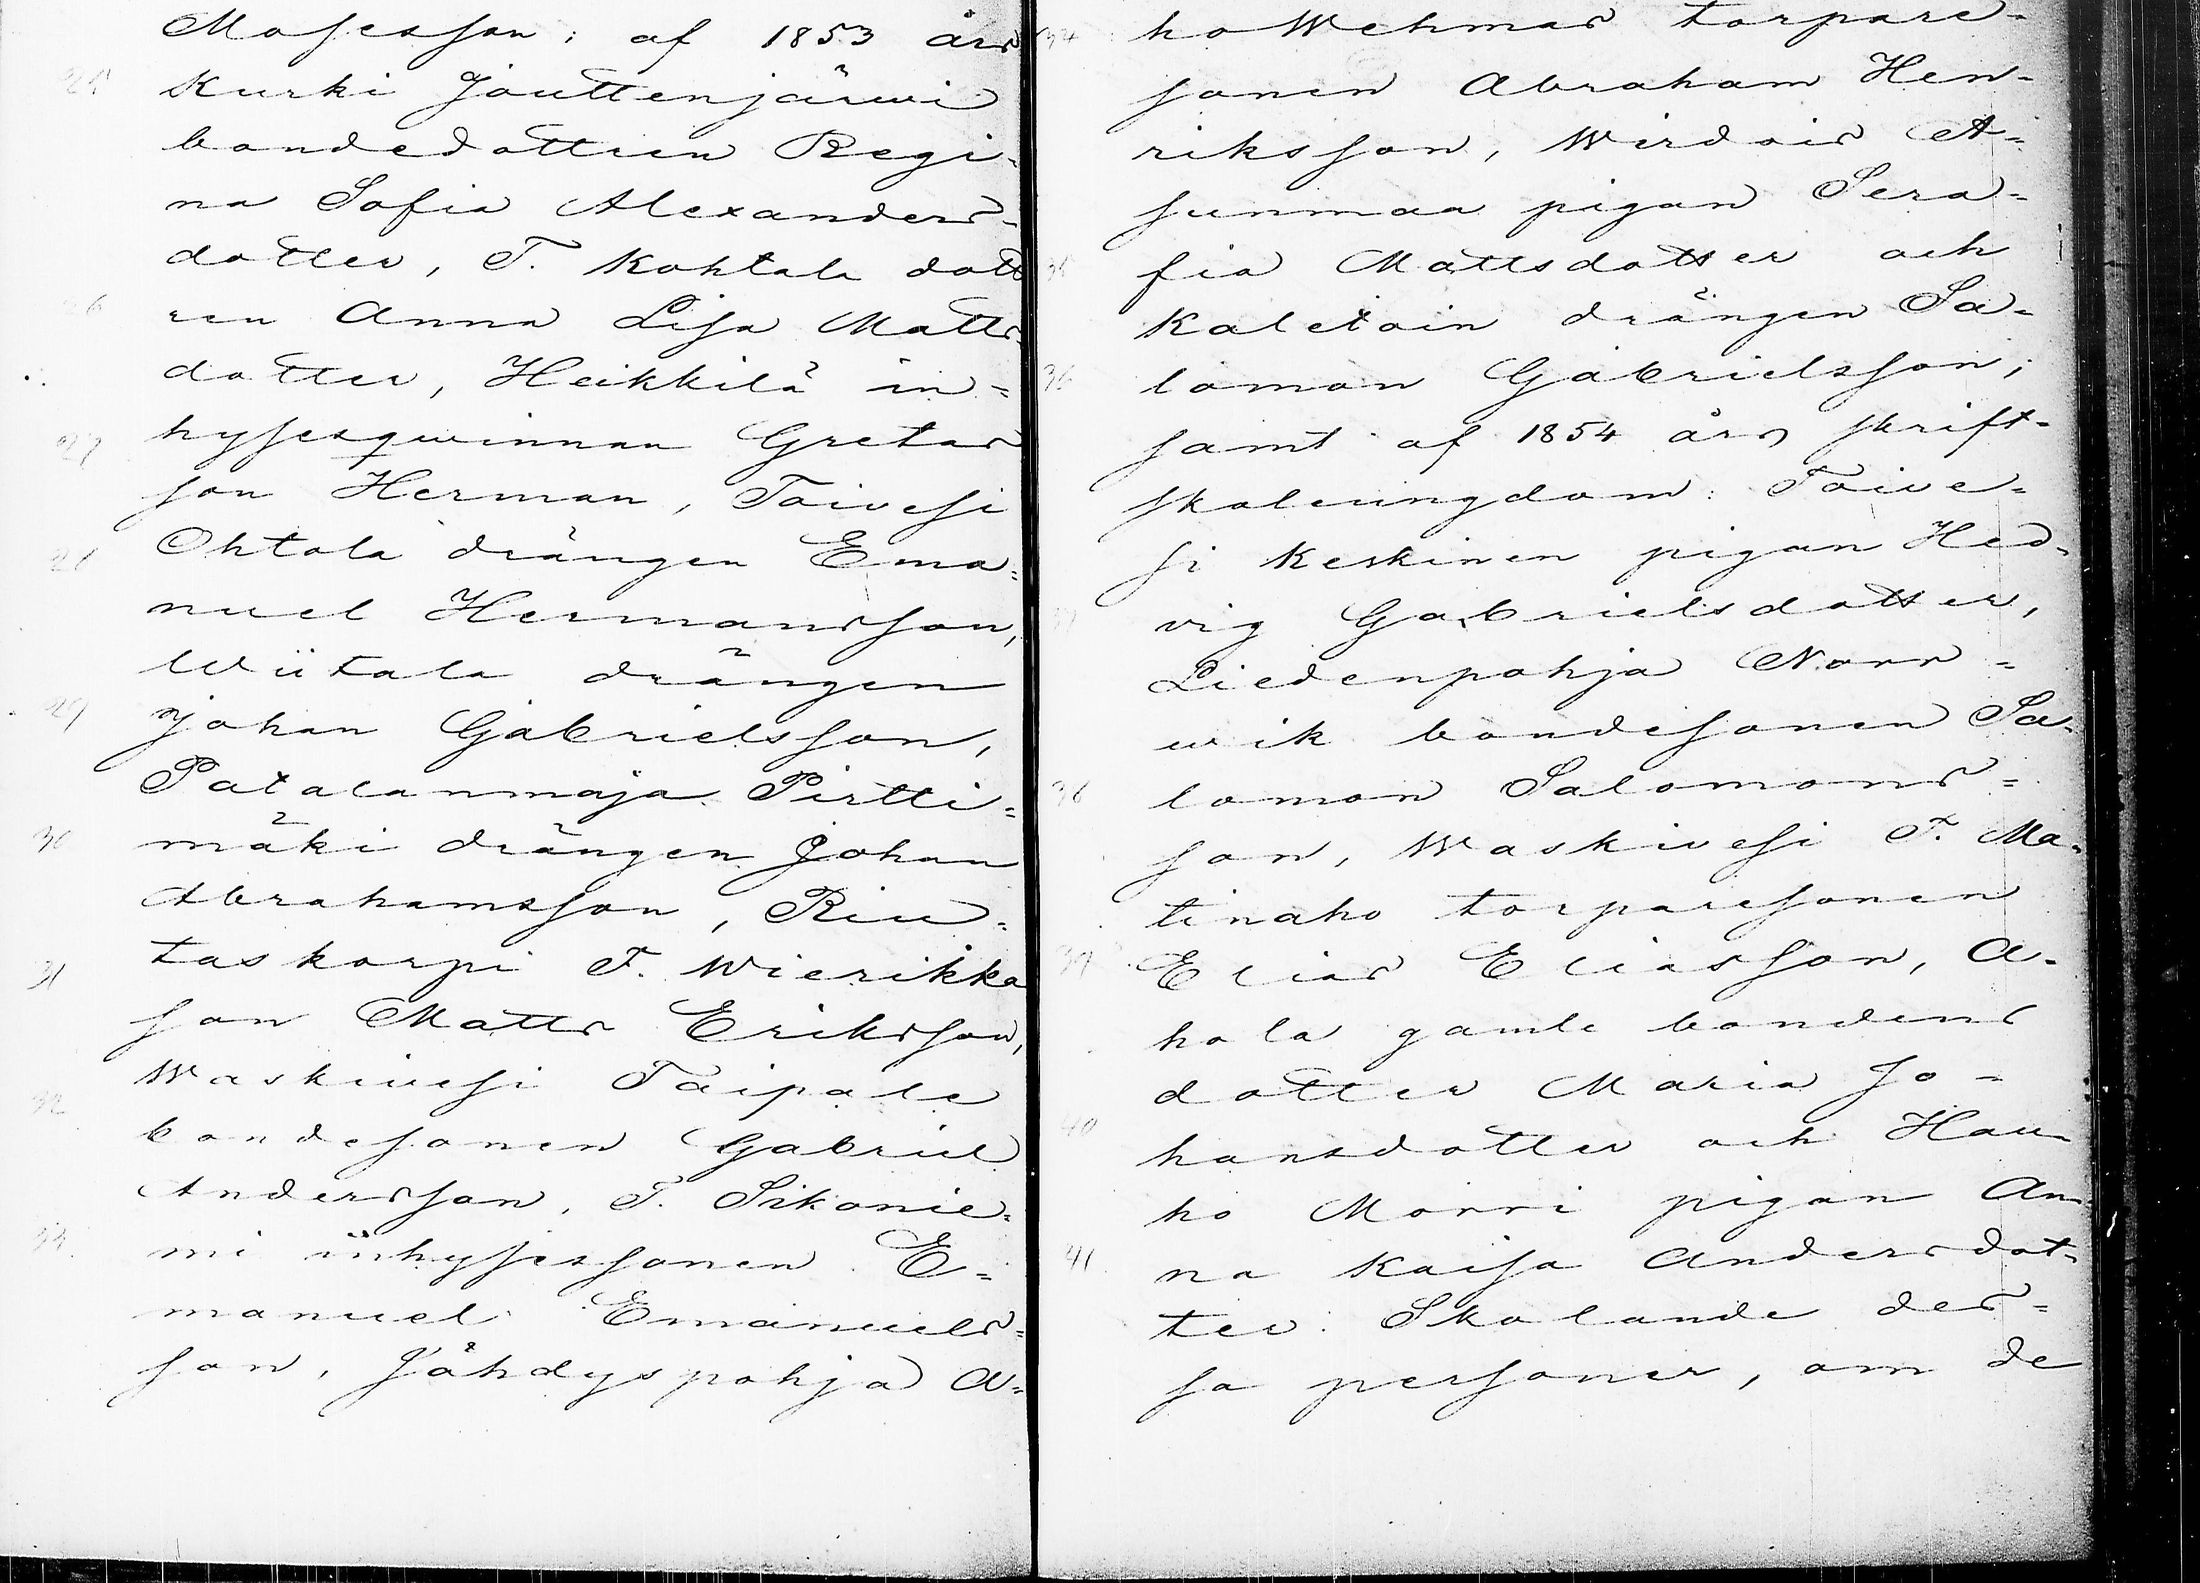 Mosesson; af 1853 års
25 Kurki Jouttenjärwi
bondedottren Regi-
na Sofia Alexanders-
dotter, T. Kohtala dott
26 ren Anna Lisa Matts-
dotter, Heikkilä in=
27 hysesqwinnan Gretas
son Herman, Toivesi
28 Ohtola drängen Ema=
nuel Hermansson,
Wiitala drängen
29 Johan Gabrielsson,
Patalanmaja Pirtti=
30 mäki drängen Johan
Abrahamsson, Riu=
31 taskorpi T. Wierikka
son Matts Eriksson,
Waskivesi Taipale
32 bondesonen Gabriel
Andersson, T. Sikonie=
33 mi inhysessonen E=
manuel Emanuels=
son, Jähdyspohja A=
34 ho Wehmas torpare=
sonen Abraham Hen-
riksson, Wirdois At=
sunmaa pigan Sera=
35 fia Mattsdotter och
Kaletoin drängen Sa=
36 lomon Gabrielsson;
samt af 1854 års skrift-
skoleungdom: Toive=
si Keskinen pigan Hed=
37 vig Gabrielsdotter,
Liedenpohja Norr=
wik bondesonen Sa-
38 lomon Salomons=
son, Waskivesi T. Ma=
tinaho torparesonen
39 Elias Eliasson, A-
hola gamle bondens
dotter Maria Jo=
40 hansdotter och Hau-
ho Morri pigan An-
41 na Kaisa Andersdot-
ter. Skolande des=
sa personer, om de